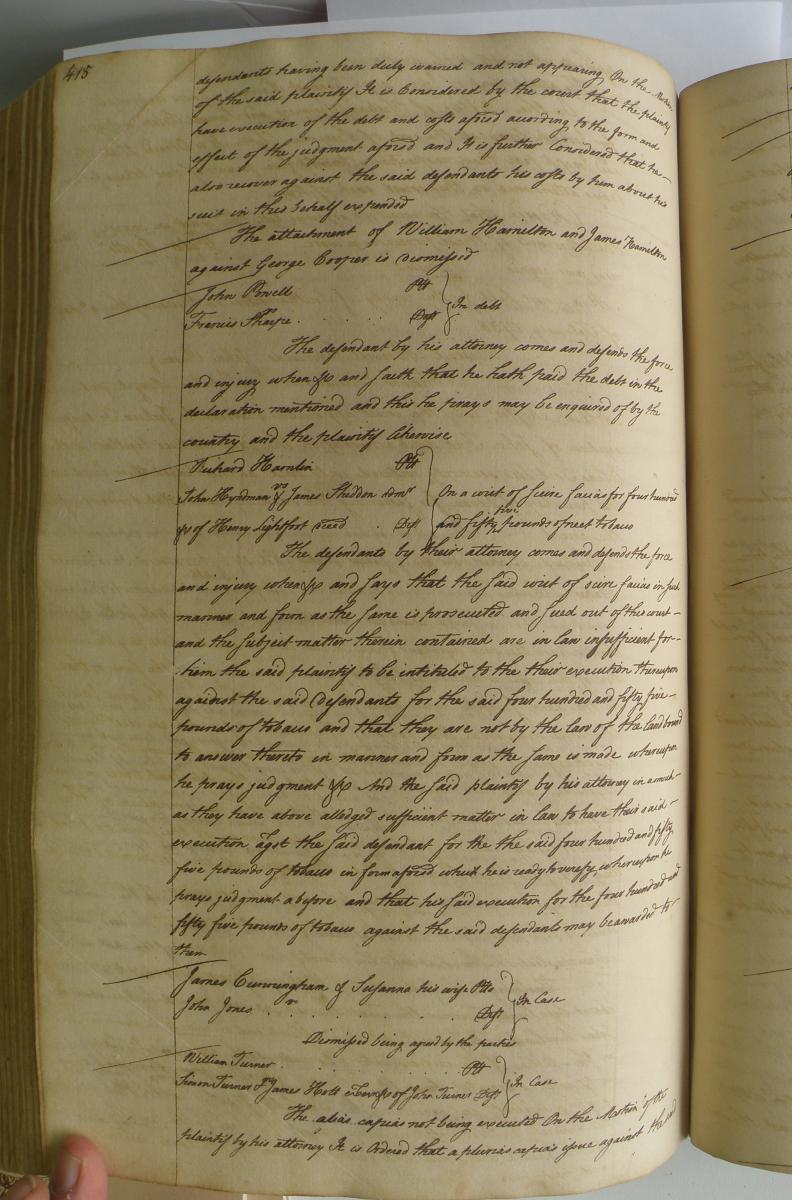 415
defendants having been duly warned and not appearing On the Motion
of the said plaintif It is Considered by the court that the plaintif
have execution of the debt and costs afored according to the form and
effect of the judgment afored and It is further Considered that he
also recover against the said defendants his costs by him about his
suit in this behalf expended
The attachment of William Hamilton and James Hamilton
against George Cooper is dismissed
John Powell Plt
In debt
Francis Sharpe . . . . . Deft
The defendant by his attorney comes and defends the force
and injury when &c and saith that he hath paid the debt in the
declaration mentioned and this he prays may be enquired of by the
country and the plaintif likewise
Richard Hamlin Plt
vs
John Hyndman & James Shedden admr On a writ of scire facias for four hundred
&c of Henry Lightfoot deced . Deft and fifty five pounds of neet tobaco
The defendants by their attorney comes and defends the force
and injury when &c and says that the said writ of scire facias in such
manner and form as the same is prosecuted and sued out of this court
and the subject matter therein contained are in law insufficient for
him the said plaintif to be intituled to the their execution thereupon
against the said defendants for the said four hundred and fifty five
pounds of tobaco and that they are not by the law of the land bound
to answer thereto in manner and form as the same is made whereupon
he prays judgment &c And the said plaintif by his attorney in asmuch
as they have above alledged sufficient matter in law to have their said
execution agst the said defendant for the the said four hundred and fifty
five pounds of tobaco in form afored which he is ready to verefy whereupon he
prays judgment a before and that his said execution for the four hundred and
fifty five pounds of tobaco against the said defendants may be awarded to
them
James Cunningham & Susanna his wife Plts
In Case
John Jones . . . . . . Deft
Dismissed being agreed by the parties
William Turner . . . . . . Plt
In Case
Simon Turner & James Holt Execrs of John Turner Deft
The alias capias not being executed On the Motion of the
plaintif by his attorney It is Ordered that a plurias capias issue against the said